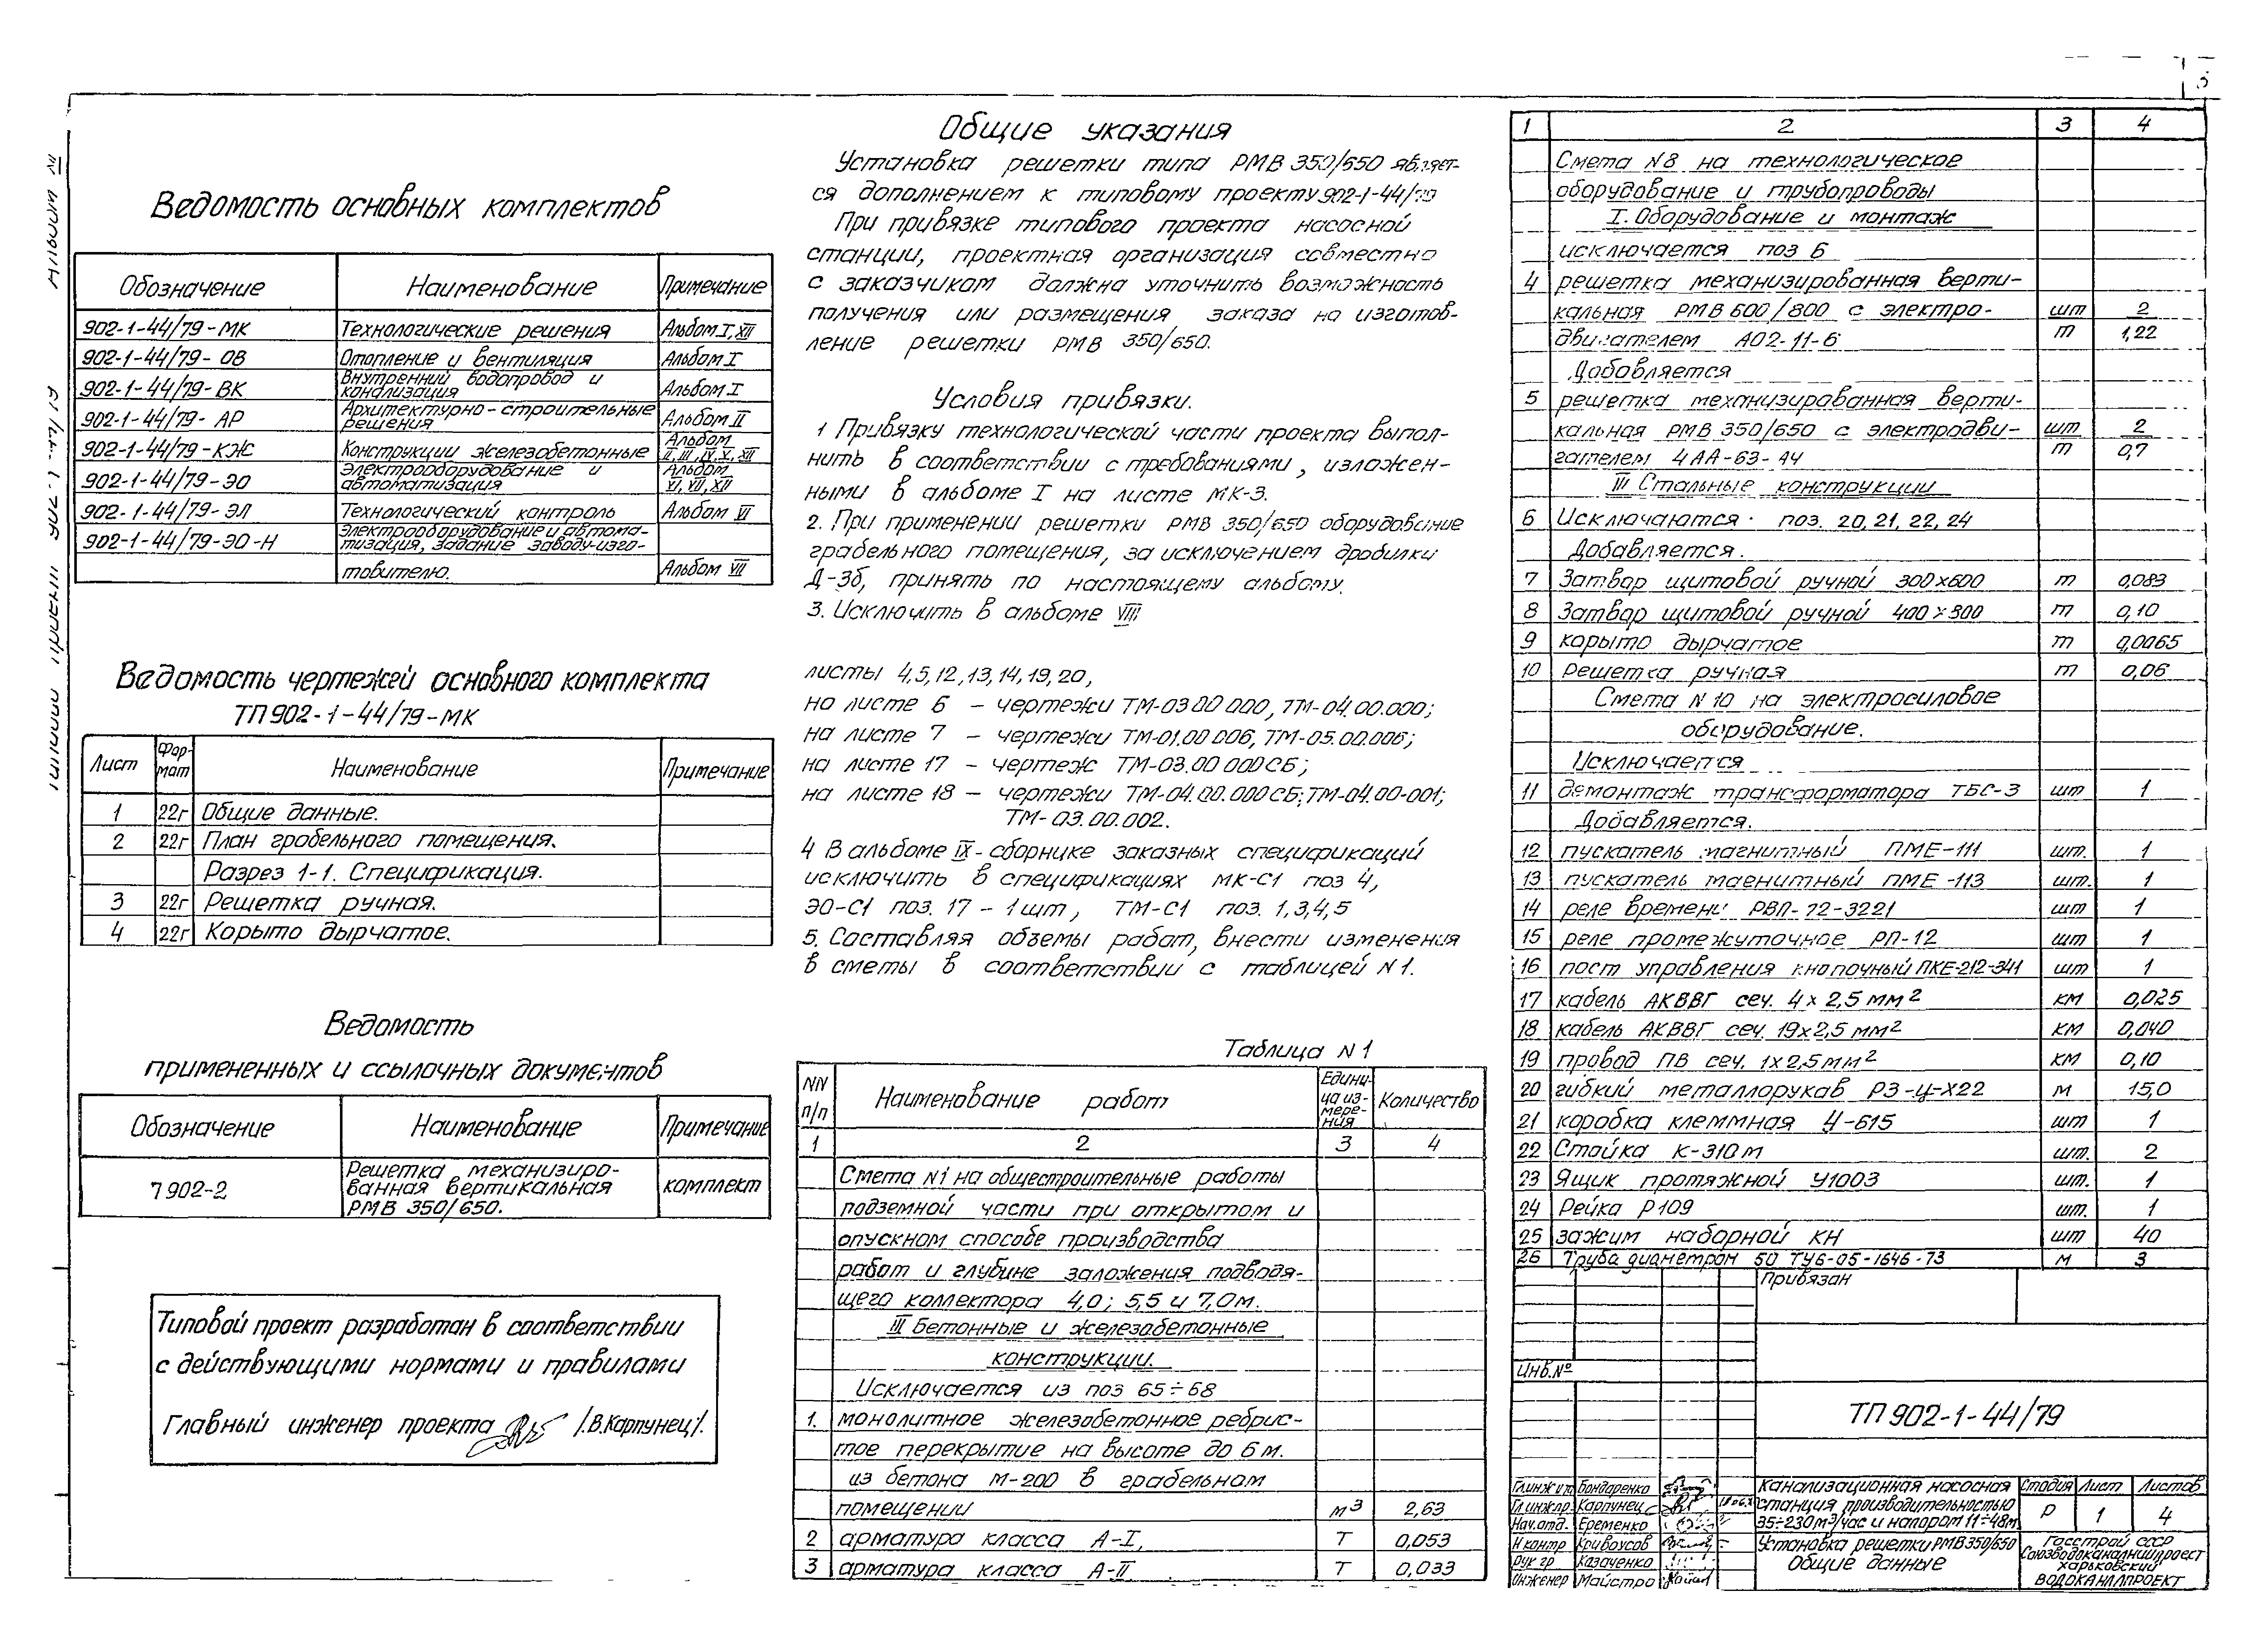 3
Альбом XII
Типовой проект 902-1-44/79
Ведомость основных комплектов
Обозначение Наименование Примечание
902-1-44/79-МК Технологические решения Альбом I, XII
902-1-44/79-ОВ Отопление и вентиляция Альбом I
902-1-44/79-ВК Внутренний водопровод и канализация Альбом I
902-1-44/79-АР Архитектурно-строительные решения Альбом II
902-1-44/79-КЖ Конструкции железобетонные Альбом II, III, IV, V, XII
902-1-44/79-ЭО Электрооборудование и автоматизация Альбом VI, VII, XII
902-1-44/79-ЭЛ Технологический контроль Альбом VI
902-1-44/79-ЭО-Н Электрооборудование и автома-
тизация, задание заводу-изго-
товителю. Альбом VII
Ведомость чертежей основного комплекта
ТП 902-1-44/79-МК
Лист Фор-мат Наименование Примечание
1 22г Общие данные.
2 22г План грабельного помещения.
Разрез 1-1. Спецификация.
3 22г Решетка ручная.
4 22г Корыто дырчатое.
Ведомость
примененных и ссылочных документов
Обозначение Наименование Примечание
7902-2 Решетка механизиро-
ванная вертикальная
РМВ 350/650. комплект
Типовой проект разработан в соответствии
с действующими нормами и правилами
Главный инженер проекта /.В.Карпунец/.
Общие указания
Установка решетки типа РМВ 350/650 являет-
ся дополнением к типовому проекту 902-1-44/79
При привязке типового проекта насосной
станции, проектная организация совместно
с заказчиком должна уточнить возможность
получения или размещения заказа на изготов-
ление решетки РМВ 350/650.
Условия привязки.
1 Привязку технологической части проекта выпол-
нить в соответствии с требованиями, изложен-
ными в альбоме I на листе МК-3.
2. При применении решетки РМВ 350/650 оборудование
грабельного помещения, за исключением дробилки
Д-3б, принять по настоящему альбому.
3. Исключить в альбоме VIII
листы 4,5,12,13,14,19,20,
на листе 6 – чертежи ТМ-03.00.000, ТМ-04.00.000;
на листе 7 – чертежи ТМ-01.00.006, ТМ-05.00.006;
на листе 17 – чертеж ТМ-03.00 000СБ;
на листе 18 – чертежи ТМ-04.00.000СБ; ТМ-04.00-001;
ТМ-03.00.002.
4 В альбоме IX - сборнике заказных спецификаций
исключить в спецификациях МК-С1 поз 4,
ЭО-С1 поз. 17 – 1 шт, ТМ-С1 поз. 1,3,4,5
5. Составляя объемы работ, внести изменения
в сметы в соответствии с таблицей N1.
Таблица N1
NN п/п Наименование работ Едини-ца из-мере-ния Количество
1 2 3 4
Смета N1 на общестроительные работы
подземной части при открытом и
опускном способе производства
работ и глубине заложения подводя-
щего коллектора 4,0; 5,5 и 7,0м.
III Бетонные и железобетонные
конструкции.
Исключается из поз 65÷68
1. монолитное железобетонное ребрис-
тое перекрытие на высоте до 6 м.
из бетона М-200 в грабельном
помещении м3 2,63
2 арматура класса А-I, Т 0,053
3 арматура класса А-II Т 0,033
1 2 3 4
Смета N8 на технологическое
оборудование и трубопроводы
I. Оборудование и монтаж
исключается поз 6
4 решетка механизированная верти-
кальная РМВ 600/800 с электро- шт 2
двигателем АО2-11-6 т 1,22
Добавляется
5 решетка механизированная верти-
кальная РМВ 350/650 с электродви- шт 2
гателем 4АА-63-А4 т 0,7
III Стальные конструкции
6 Исключаются. поз. 20, 21, 22, 24
Добавляется.
7 Затвор щитовой ручной 300х600 т 0,083
8 Затвор щитовой ручной 400х800 т 0,10
9 корыто дырчатое т 0,0065
10 Решетка ручная т 0,06
Смета N10 на электросиловое
оборудование.
Исключается
11 демонтаж трансформатора ТБС-3 шт 1
Добавляется.
12 пускатель магнитный ПМЕ-111 шт. 1
13 пускатель магнитный ПМЕ-113 шт. 1
14 реле времени РВП-72-3221 шт 1
15 реле промежуточное РП-12 шт 1
16 пост управления кнопочный ПКЕ-212-3У1 шт 1
17 кабель АКВВГ сеч. 4х2,5 мм2 км 0,025
18 кабель АКВВГ сеч. 19х2,5 мм2 км 0,040
19 провод ПВ сеч. 1х2,5мм2 км 0,10
20 гибкий металлорукав РЗ-Ц-Х22 м 15,0
21 коробка клеммная У-615 шт 1
22 Стойка К-310м шт. 2
23 Ящик протяжной У1003 шт. 1
24 Рейка Р109 шт. 1
25 зажим наборной КН шт 40
26 Труба диаметром 50 ТУ6-05-1646-73 м 3
Привязан
Инв.№
ТП 902-1-44/79
Гл.инж ит Бондаренко
Гл.инж.пр. Карпунец
Нач.отд. Еременко
Н контр Кривоусов
Рук гр Казаченко
Инженер Майстро
Канализационная насосная
станция производительностью
35÷230м3/час и напором 11÷48м
Стадия Лист Листов
Р 1 4
Установка решетки РМВ 350/650
Общие данные
Госстрой СССР
Союзводоканалниипроект
Харьковский
ВОДОКАНАЛПРОЕКТ